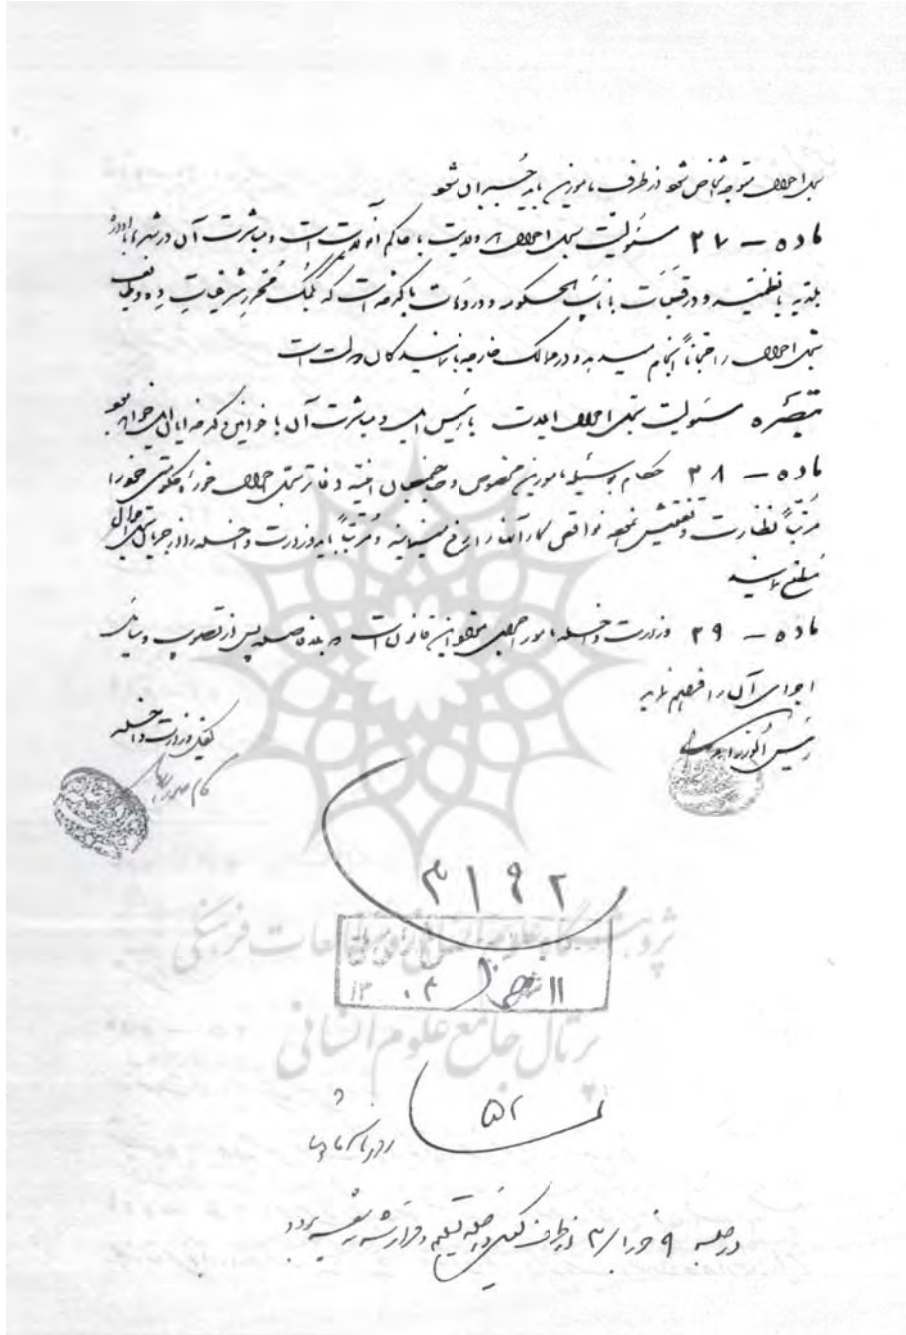 سجل احوال متوجه اشخاص شود از طرف مامورین باید جبران شود
ماده - ۲۷ مسئولیت سجل احوال هر ولایت با حاکم آنولایت است و مباشرت آن در شهرها با اداره
بلدیه یا نظمیه و در قصبات با نایب الحکومه و در دهات با کدخداست که بکمک محرر شرعیات ده وظایف
سجل احوال را مجاناً انجام میدهد و در ممالک خارجه با نمایندگان دولت است
تبصره مسئولیت سجل احوال ایلات با رئیس ایل و مباشرت آن با خوانین و کدخدایان ایل خواهد بود
ماده - ۲۸ حکام بوسیله مامورین مخصوص و صاحبمنصبان امنیه دفاتر سجل احوال حوزه حکومتی خود را
مرتباً نظارت و تفتیش نموده نواقص کار آنها را رفع مینمایند و مرتباً باید وزارت داخله را از جریان سجل احوال
مطلع نمایند
ماده - ۲۹ وزارت داخله مامور اجرای این قانون است و بلافاصله پس از تصویب وسائل
اجرای آن را فراهم نماید
رئیس الوزراء
کفیل وزارت داخله
۳۱۹۲
۱۱ ۱۳۰۴
پژوهشگاه علوم انسانی و مطالعات فرهنگی
پرتال جامع علوم انسانی
۵۲
در جلسه ۹ خرداد ۴ از طرف کفیل داخله تسلیم و قرار شد